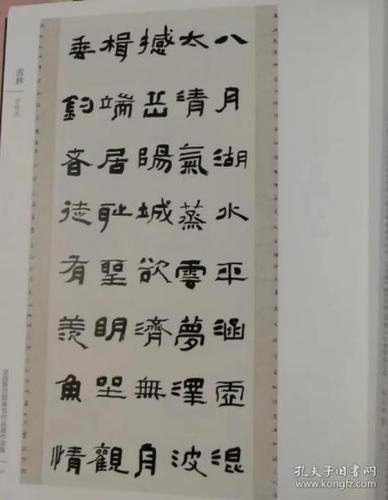 八月湖水平涵虛混
太清氣蒸雲夢澤波
撼岳陽城欲濟無舟
楫端居耻聖明坐觀
垂釣者徒有羨魚情
吉林
孔夫子旧书网
www.kongfz.com